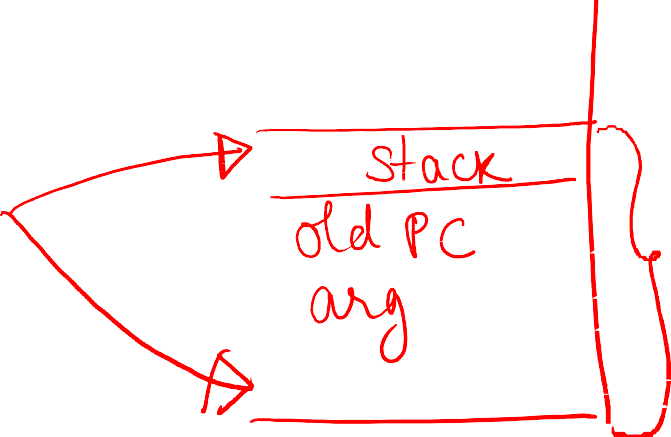 stack
old PC
arg